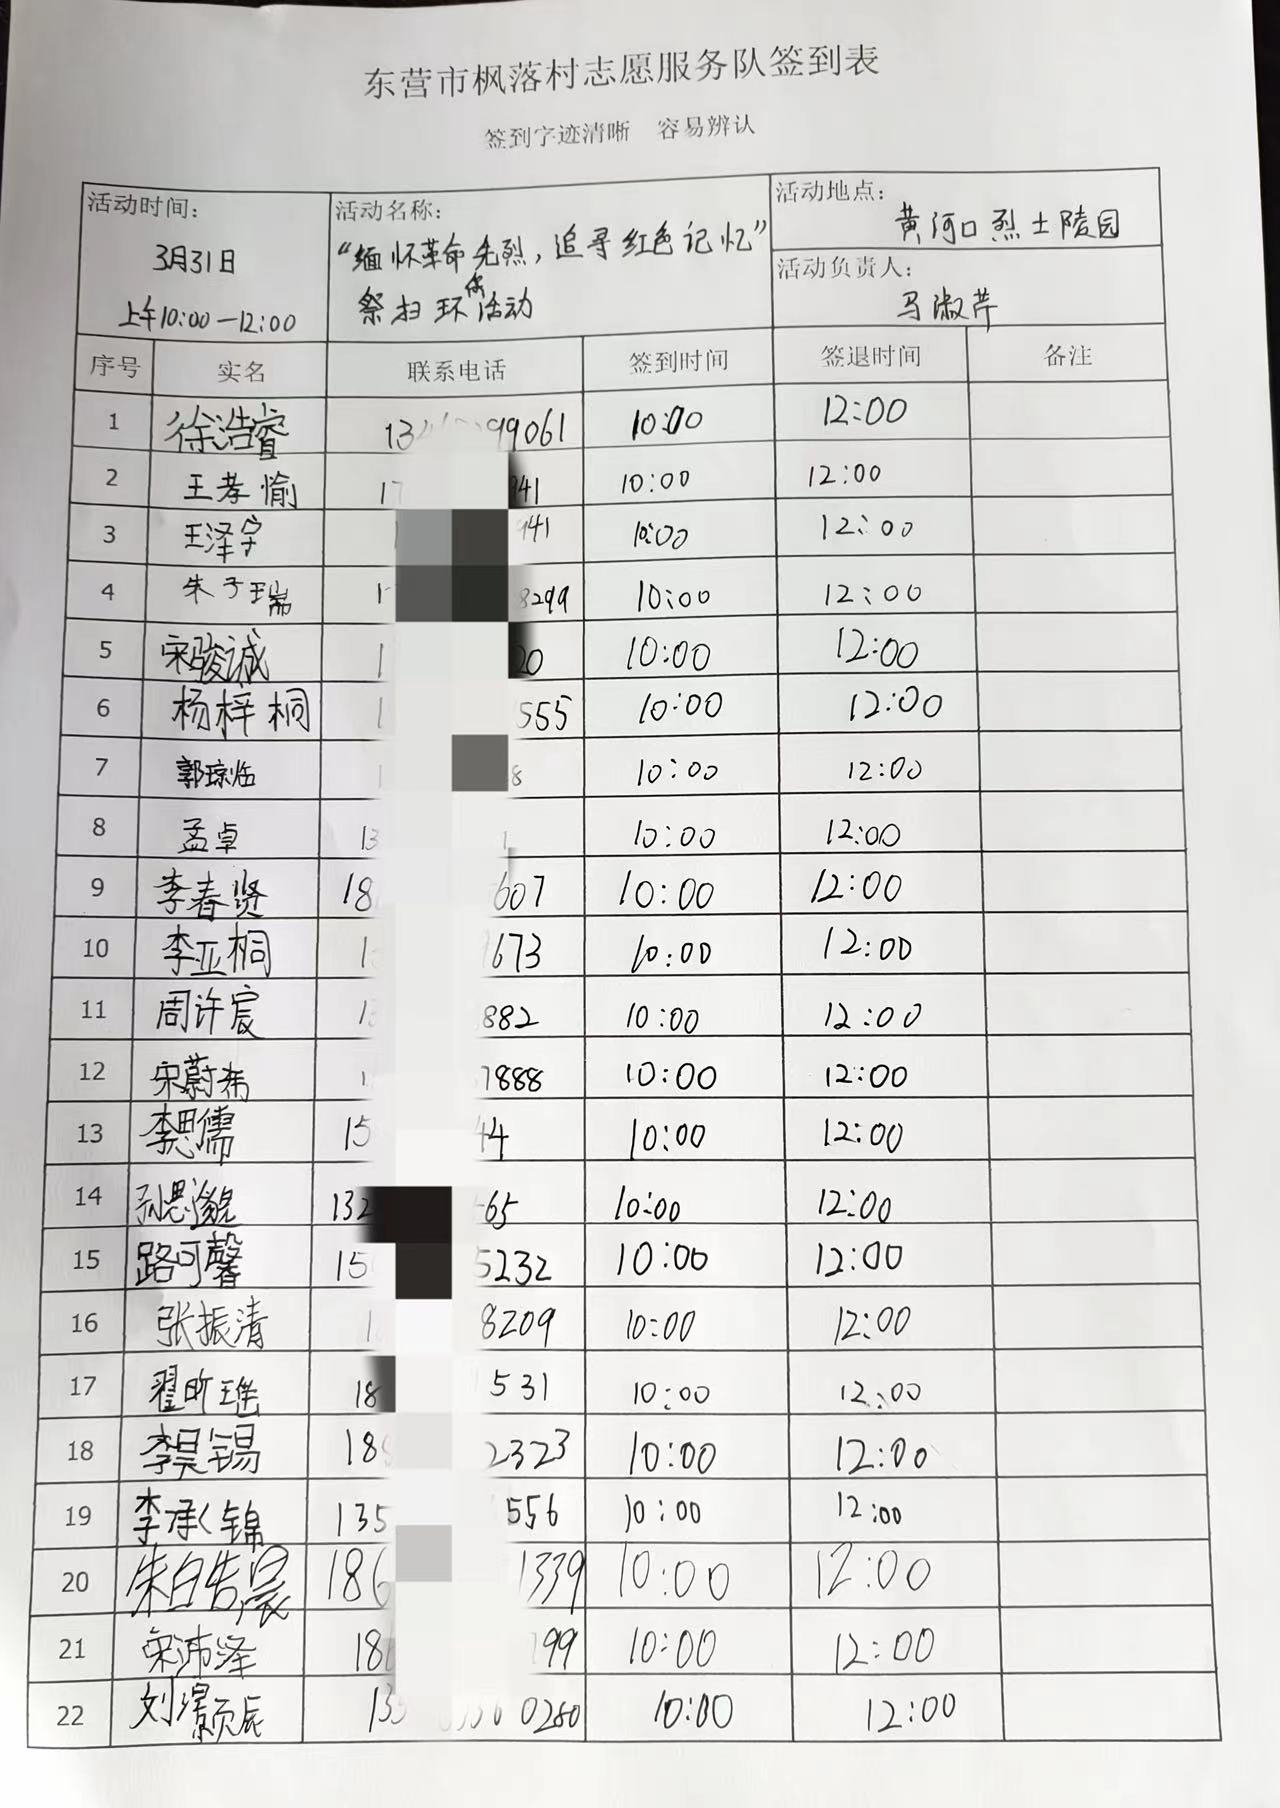 东营市枫落村志愿服务队签到表
签到字迹清晰 容易辨认
活动时间：
3月31日
上午10:00—12:00
活动名称：
“缅怀革命先烈，追寻红色记忆”
祭扫环保活动
活动地点：
黄河口烈士陵园
活动负责人：
马淑芹
序号 实名 联系电话 签到时间 签退时间 备注
1 徐浩睿 13 99061 10:00 12:00
2 王孝愉 17 941 10:00 12:00
3 王泽宇 1 941 10:00 12:00
4 朱子瑞 1 8299 10:00 12:00
5 宋骏诚 1 20 10:00 12:00
6 杨梓桐 1 555 10:00 12:00
7 郭琼临 1 8 10:00 12:00
8 孟卓 13 1 10:00 12:00
9 李春贤 18 607 10:00 12:00
10 李亚桐 1 9673 10:00 12:00
11 周许宸 13 882 10:00 12:00
12 宋蔚希 1 7888 10:00 12:00
13 李思儒 15 44 10:00 12:00
14 孙思邈 132 65 10:00 12:00
15 路可馨 15 5232 10:00 12:00
16 张振清 1 8209 10:00 12:00
17 翟昕瑶 18 531 10:00 12:00
18 李昊锡 188 2323 10:00 12:00
19 李承锦 135 556 10:00 12:00
20 朱 186 1339 10:00 12:00
21 宋沛泽 18 199 10:00 12:00
22 刘灏辰 135 0280 10:00 12:00